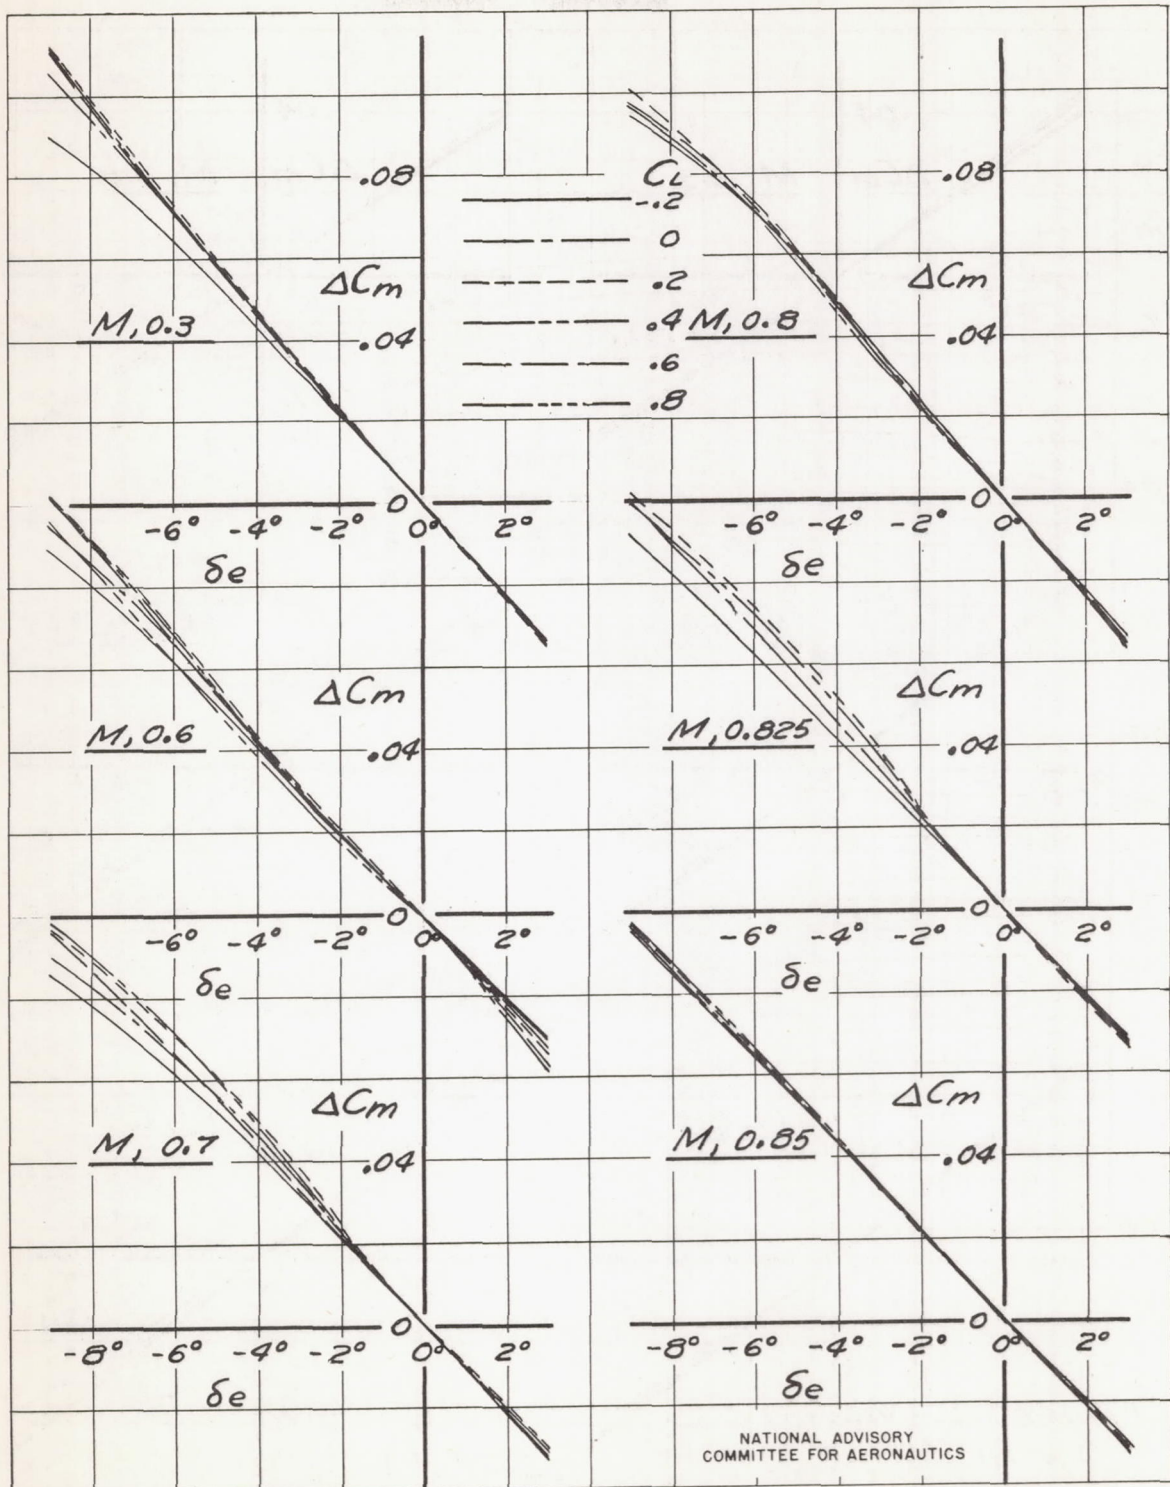 CL
-.2
0
.2
.4
.6
.8
.08
ΔCm
M, 0.3
.04
0
-6° -4° -2° 0° 2°
δe
.08
ΔCm
M, 0.8
.04
0
-6° -4° -2° 0° 2°
δe
ΔCm
M, 0.6
.04
0
-6° -4° -2° 0° 2°
δe
ΔCm
M, 0.825
.04
0
-6° -4° -2° 0° 2°
δe
ΔCm
M, 0.7
.04
0
-8° -6° -4° -2° 0° 2°
δe
ΔCm
M, 0.85
.04
0
-8° -6° -4° -2° 0° 2°
δe
NATIONAL ADVISORY
COMMITTEE FOR AERONAUTICS